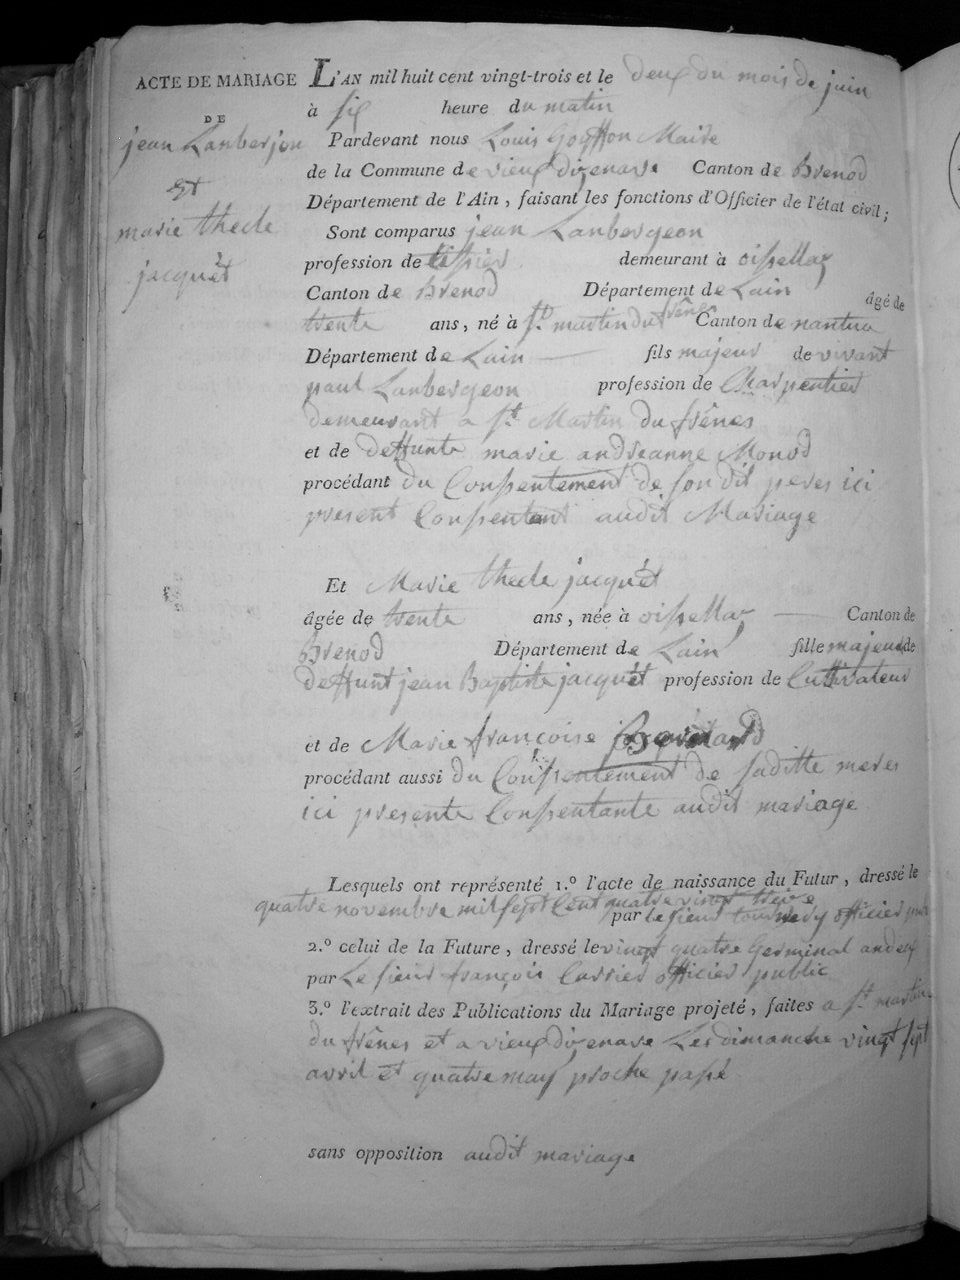 ACTE DE MARIAGE
DE
jean Lanberjon
Et
marie thecle
jacquêt
L'AN mil huit cent vingt-trois et le deux du mois de juin
à six heure du matin
Pardevant nous Louis Maire
de la Commune de vieux dizenave Canton de Brenod
Département de l'Ain, faisant les fonctions d'Officier de l'état civil;
Sont comparus jean Lanbergeon
profession de demeurant à oissellaz
Canton de Brenod Département de Lain âgé de
trente ans, né à St. martin du frênes Canton de nantua
Département de Lain fils majeur de vivant
paul Lanbergeon profession de Charpentier
demeurant a St. Martin du frênes
et de deffunte marie andréanne Monod
procédant du Conssentement de son dit peres ici
present Conssentent audit Mariage
Et Marie thecle jacquêt
âgée de trente ans, née à oissellaz Canton de
Brenod Département de Lain fille majeur de
deffunt jean Baptiste jacquêt profession de Cultivateur
et de Marie françoise
procédant aussi du Conssentement de saditte meres
ici presente Conssentante audit mariage
Lesquels ont représenté 1.º l'acte de naissance du Futur, dressé le
quatre novembre mil sept Cent quatre vingt treize
par le sieur officier
2.º celui de la Future, dressé le vingt quatre Germinal an deux
par Le sieur françois Carrier officier public
3.º l'extrait des Publications du Mariage projeté, faites a St. martin
du frênes et a vieux dizenave Les dimanche vingt sept
avril et quatre may proche passé
sans opposition audit mariage